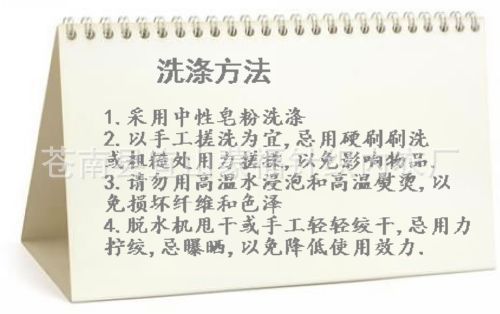 洗涤方法
1.采用中性皂粉洗涤
2.以手工搓洗为宜,忌用硬刷刷洗
或机撞处用力搓揉,以免影响物品
3.请勿用高温水浸泡和高温熨烫,以
免损坏纤维和色泽
4.脱水机甩干或手工轻轻绞干,忌用力
拧绞,忌曝晒,以免降低使用效力.
苍南县
厂